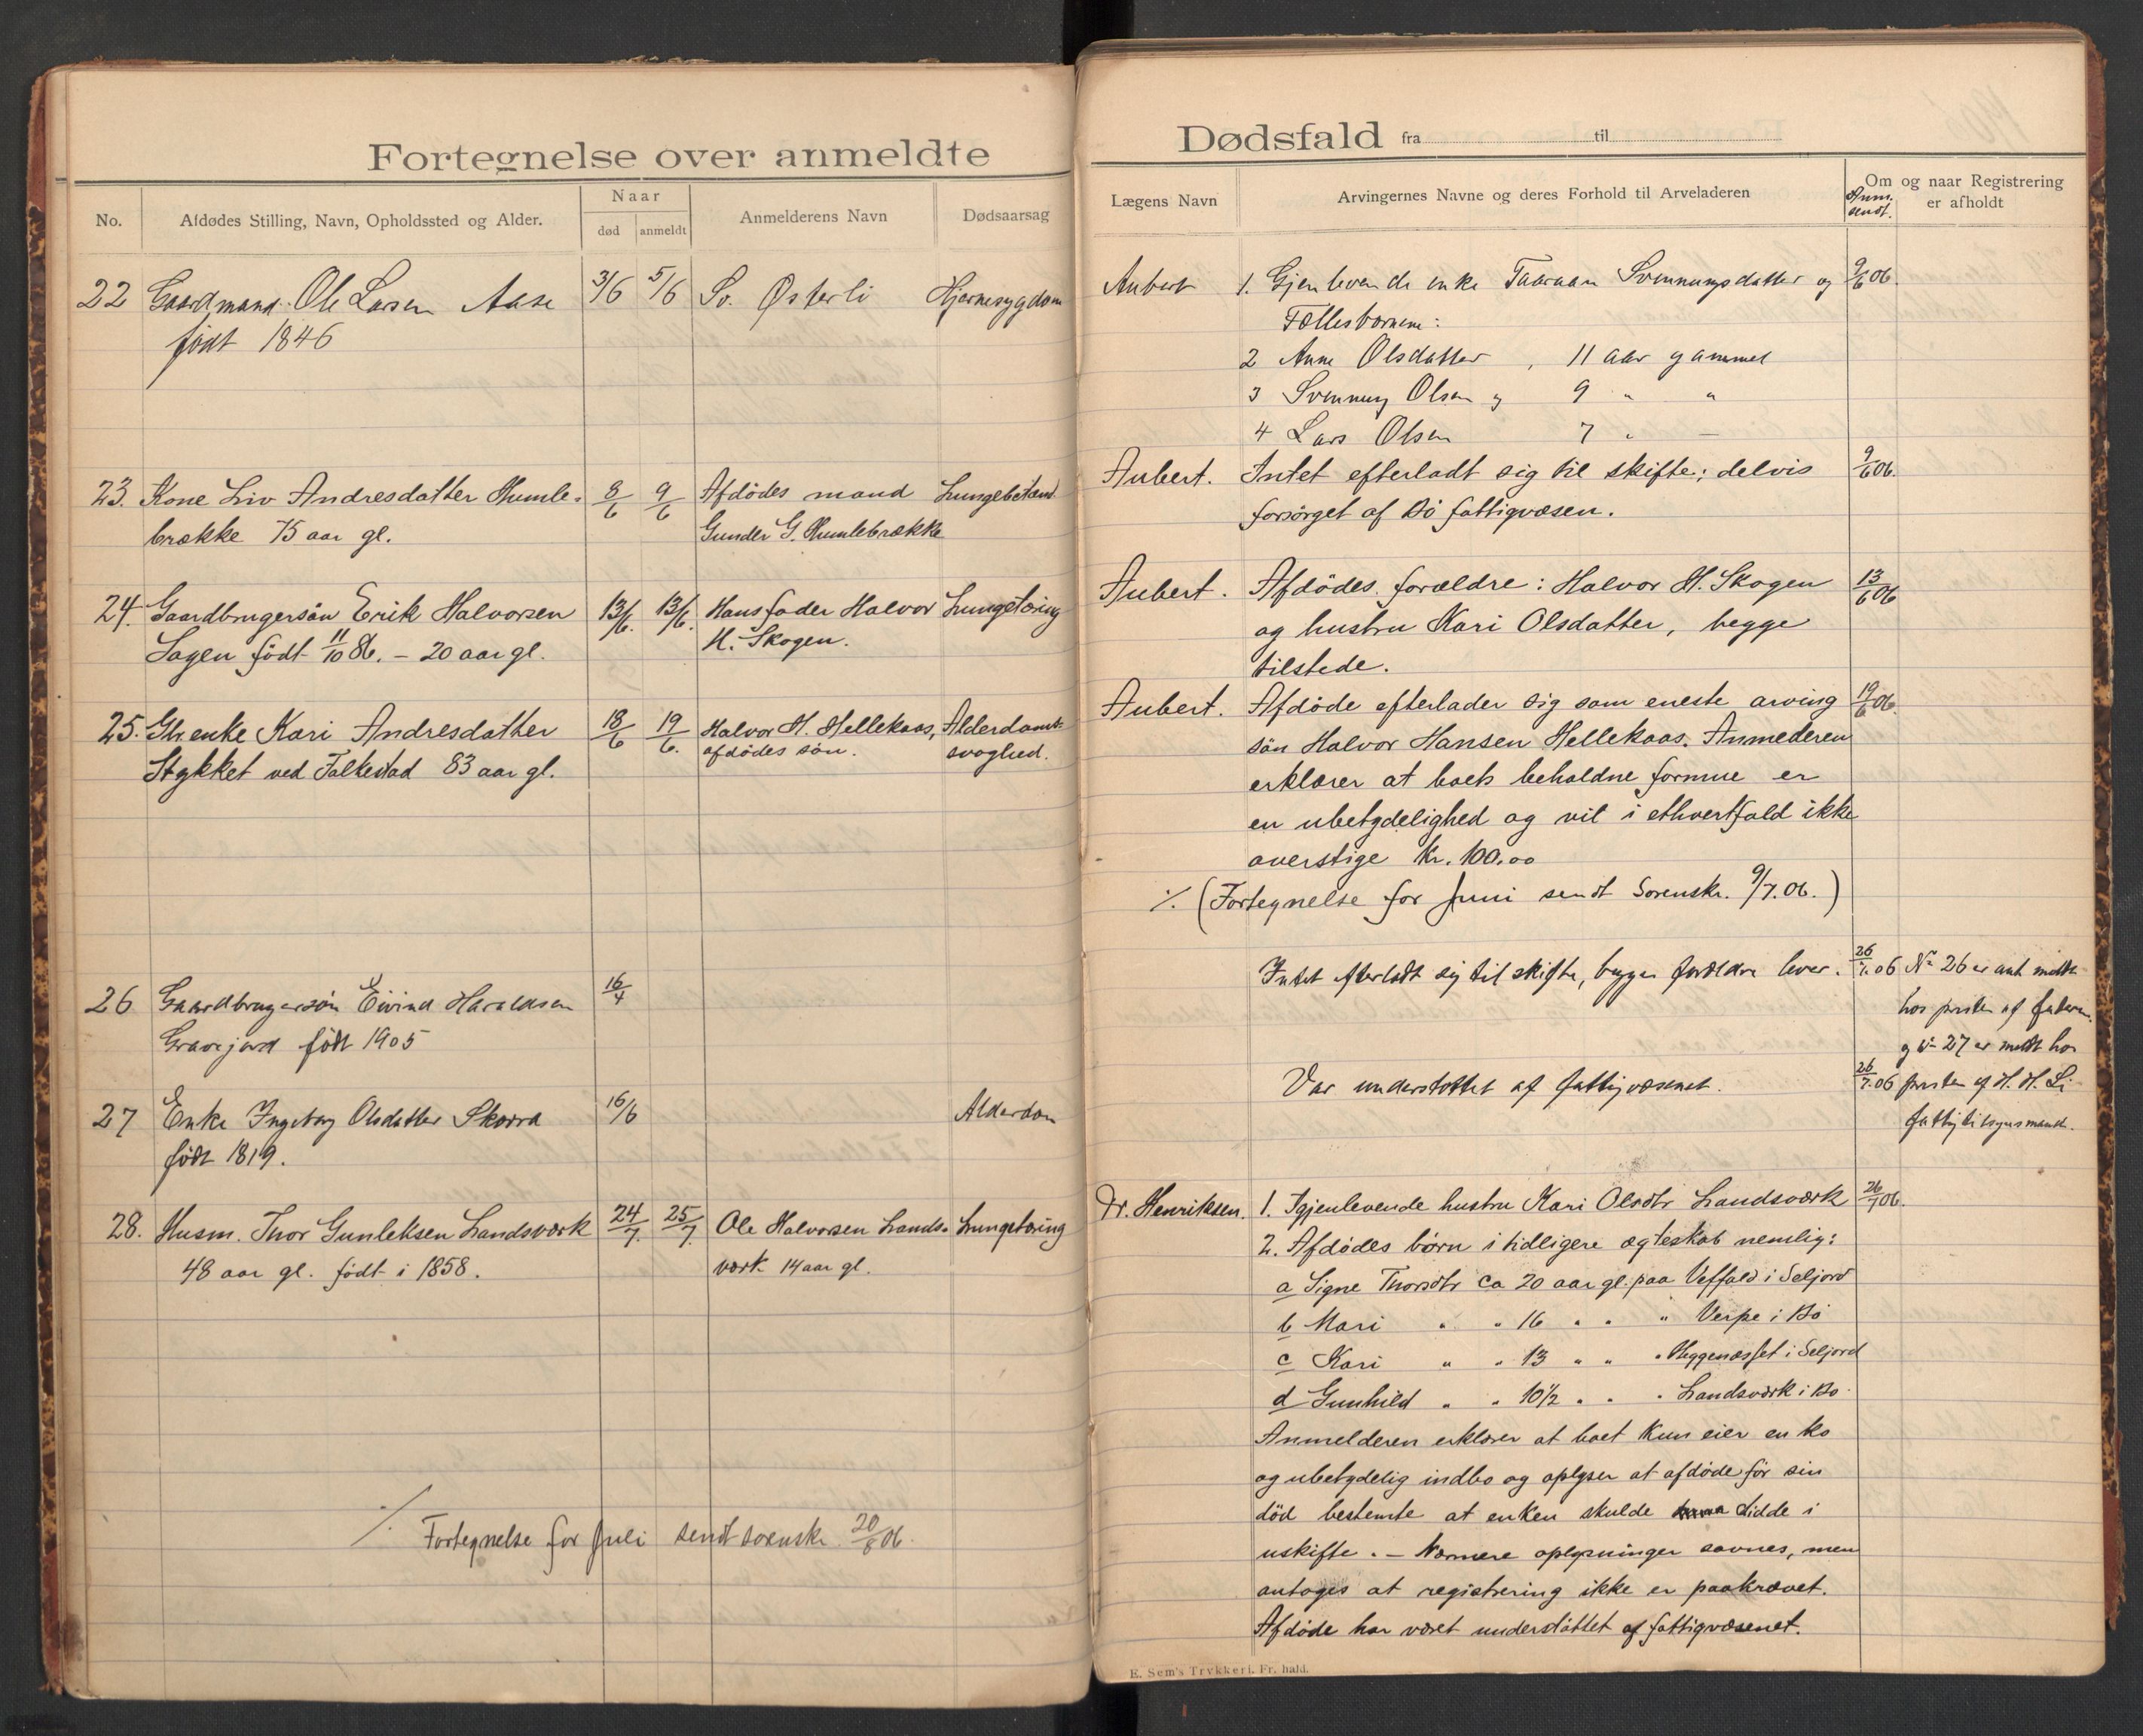 Fortegnelse over anmeldte
No.
Afdødes Stilling, Navn, Opholdssted og Alder.
Naar
død
anmeldt
Anmelderens Navn
Dødsaarsag
22 Gaardmand Ole Larsen Aase 3/6 5/6 Sv. Østerli Hjernesygdom
født 1846
23. Kone Liv Andresdatter Humle- 8/6 9/6 Afdødes mand Lungebetænd
brække 75 aar gl. Gunder G. Humlebrække
24. Gaardbrugersön Erik Halvorsen 13/6. 13/6. Hans fader Halvor Lungetæring
Sagen födt 11/10 86. - 20 aar gl. H. Skogen.
25. Gl. enke Kari Andresdatter 18/6 19/6. Halvor H. Hellekaas, Alderdoms-
Stykket ved Folkestad 83 aar gl. afdödes sön. svaghed.
26 Gaardbrugersøn Eivind Haraldsen 16/4
Gravejord født 1905
27 Enke Ingeborg Olsdatter Skorra 16/6 Alderdom
født 1819.
28. Husm. Thor Gunleksen Landsværk 24/7. 25/7. Ole Halvorsen Lands- Lungetæring
48 aar gl. födt i 1858. værk 14 aar gl.
./. Fortegnelse for Juli sendt sorenskr. 20/8 06.
Dødsfald fra til
Lægens Navn
Arvingernes Navne og deres Forhold til Arveladeren
Anm. sendt.
Om og naar Registrering
er afholdt
Aubert 1. Gjenlevende enke Taaraan Svennungsdatter og 9/6 06.
Fællesbørnene:
2 Anne Olsdatter, 11 aar gammel
3 Svennung Olsen og 9 " "
4 Lars Olsen 7 " —
Aubert. Intet efterladt sig til skifte; delvis 9/6 06.
forsörget af Bö fattigvæsen.
Aubert. Afdödes forældre: Halvor H. Skogen 13/6 06
og hustru Kari Olsdatter, begge
tilstede.
Aubert. Afdöde efterlader sig som eneste arving 19/6 06.
sön Halvor Hansen Hellekaas. Anmederen
erklærer at boets beholdne formue er
en ubetydelighed og vil i ethvertfald ikke
overstige kr. 100.00
./. (Fortegnelse for Juni sendt Sorenskr. 9/7.06.)
Intet efterladt sig til skifte, begge forældre lever. 26/7.06 No 26 er anmeldt
hos presten af faderen
og No 27 er meldt hos
Var understøttet af fattigvæsenet. 26/7.06 presten af H. H. Li
fattigtilsynsmand.
Dr. Henriksen. 1. Igjenlevende hustru Kari Olsdtr Landsværk 26/7 06.
2. Afdödes börn i tidligere ægteskab nemlig:
a Signe Thorsdtr ca 20 aar gl. paa Veffald i Seljord
b Mari " " 16 " " " Verpe i Bö
c Kari " " 13 " " " Heggenæsset i Seljord
d Gunhild " " 10½ " " " Landsværk i Bö.
Anmelderen erklærer at boet kun eier en ko
og ubetydelig indbo og oplyser at afdöde för sin
död bestemte at enken skulde sidde i
uskifte. - Nærmere oplysninger savnes, men
antages at registrering ikke er paakrævet.
Afdöde har været understöttet af fattigvæsenet.
E. Sem's Trykkeri. Fr. hald.